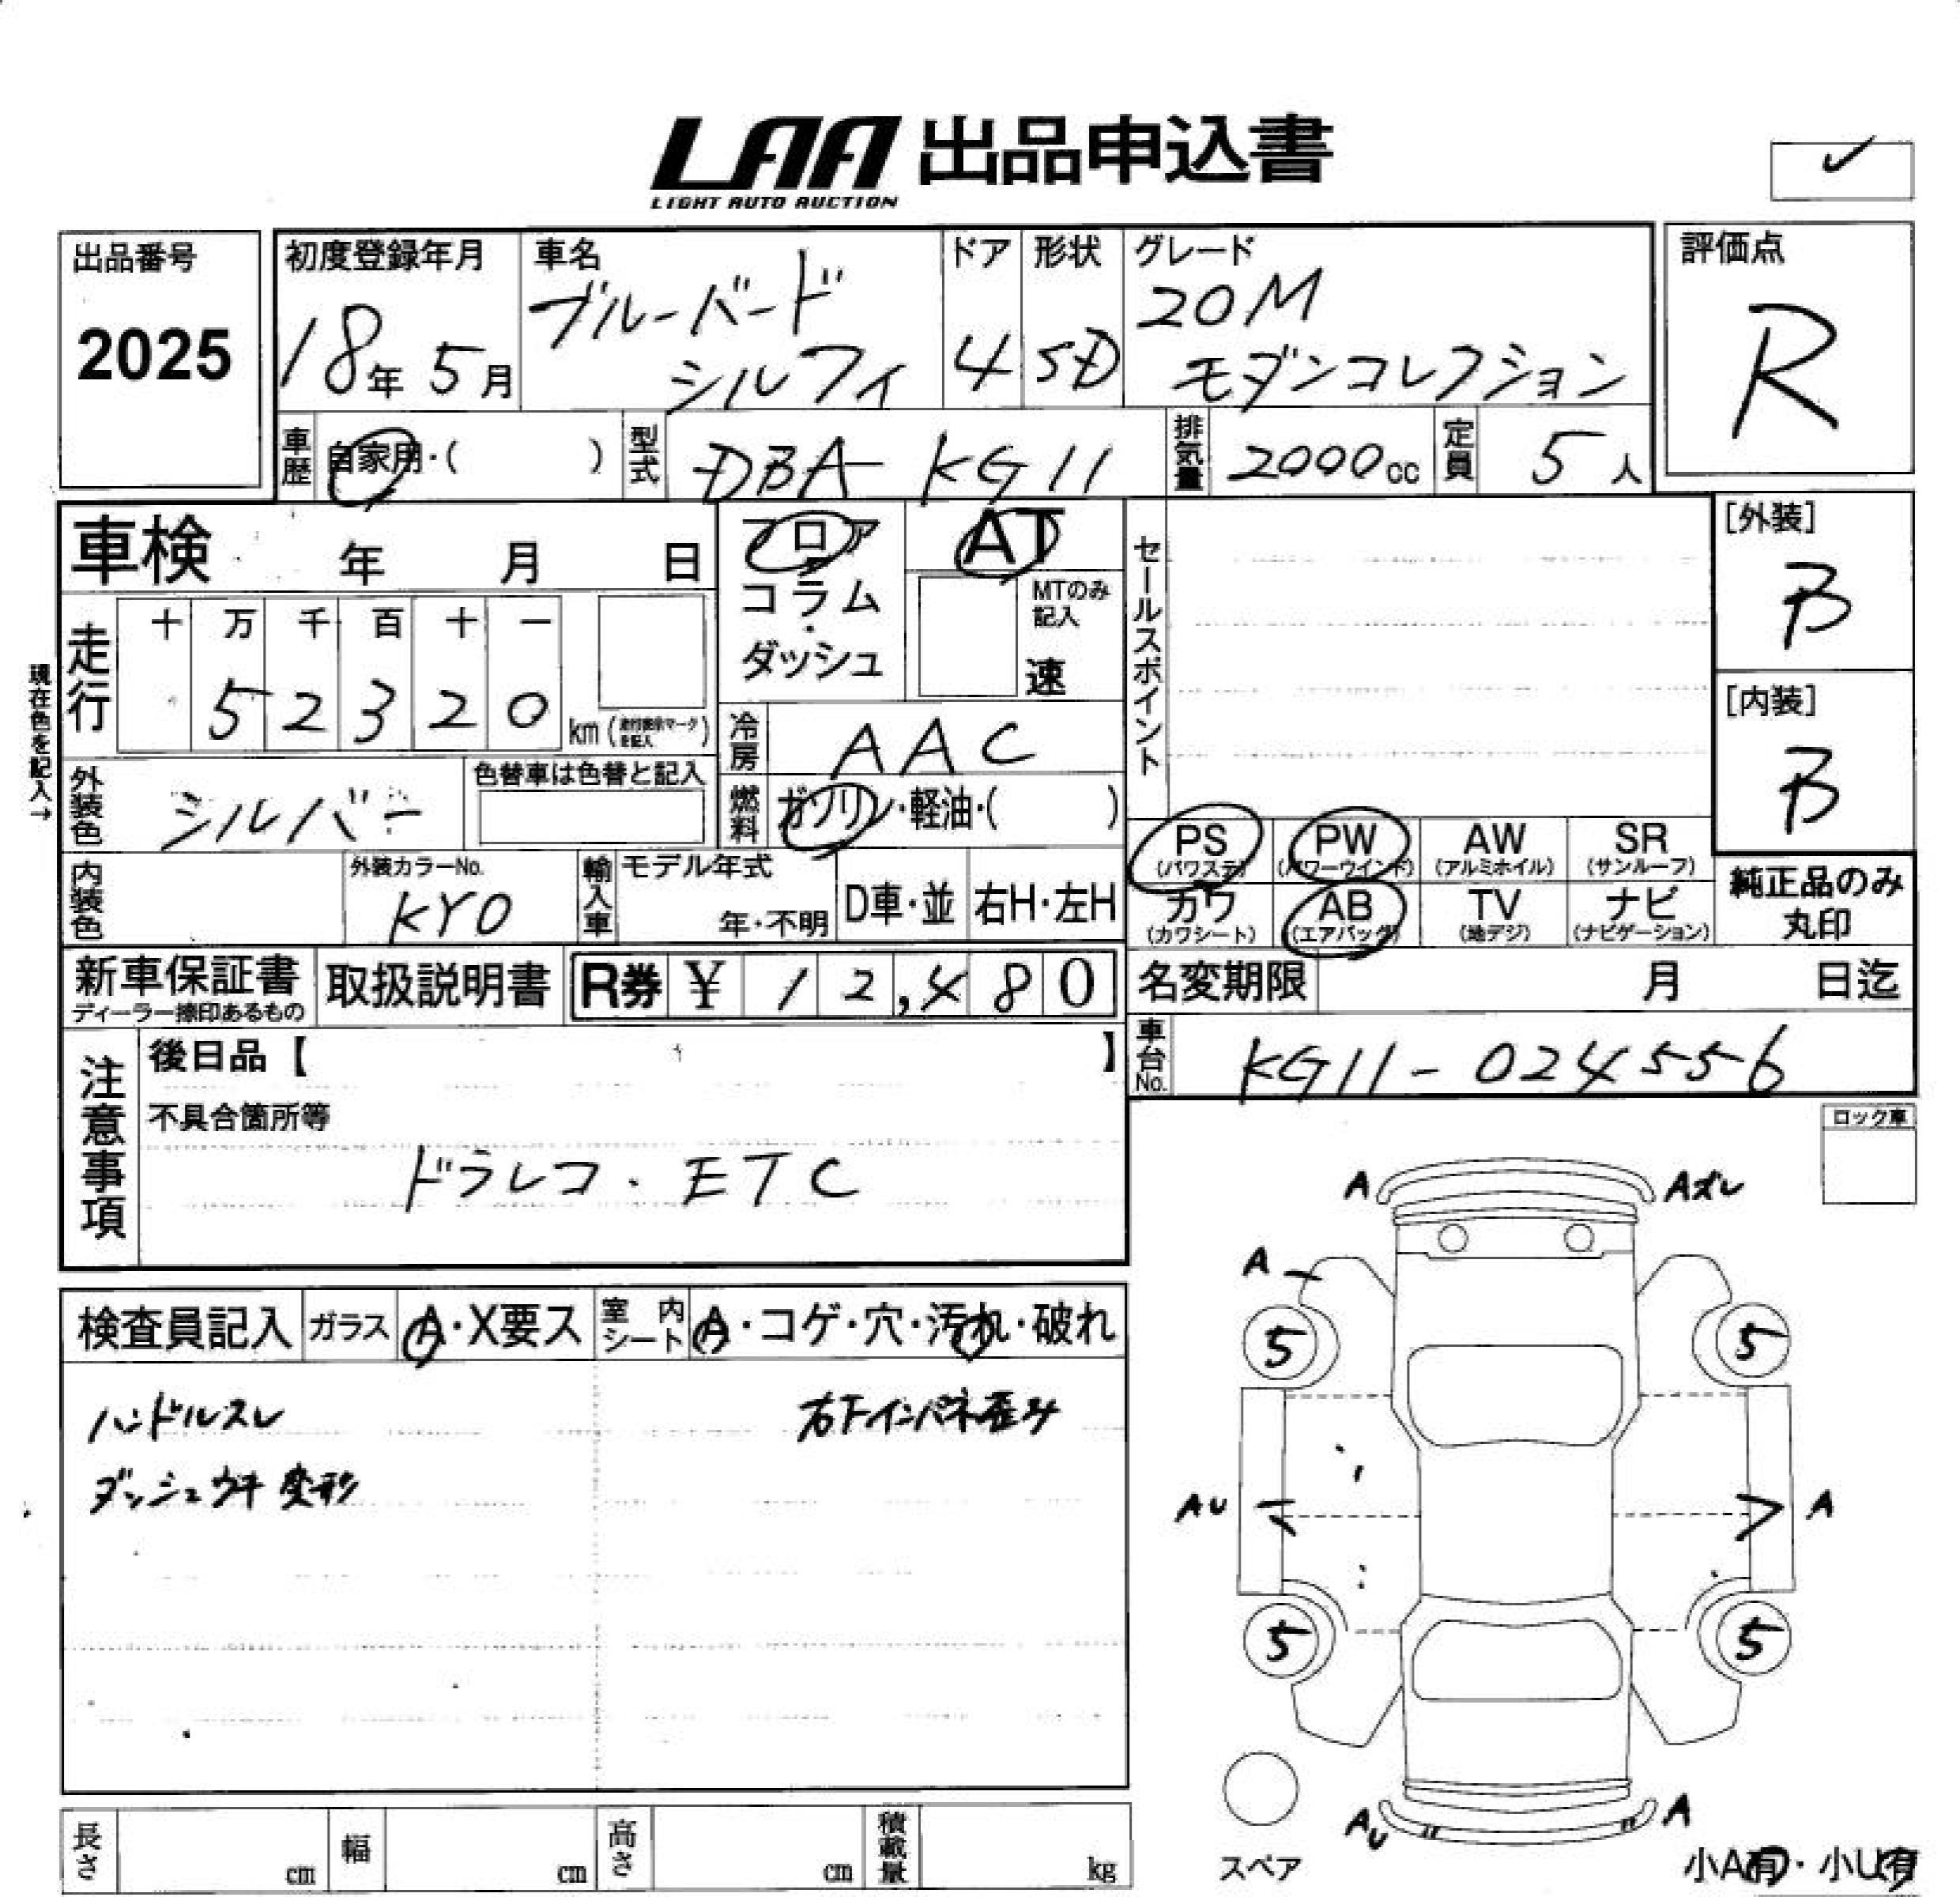 LAA 出品申込書
LIGHT AUTO AUCTION
出品番号
2025
初度登録年月
18年 5月
車名
ブルーバード
シルフィ
ドア
4
形状
SD
グレード
20M
モダンコレクション
評価点
R
車歴 自家用・( )
型式 DBA KG11
排気量 2000cc
定員 5人
車検 年 月 日
フロア
コラム
・
ダッシュ
AT
MTのみ
記入
速
セールスポイント
[外装]
B
[内装]
B
現在色を記入→
走行
十 万 千 百 十 一
5 2 3 2 0
km
冷房 AAC
外装色 シルバー
色替車は色替と記入
燃料 ガソリン・軽油・( )
PS
(パワステ)
PW
(パワーウインド)
AW
(アルミホイル)
SR
(サンルーフ)
カワ
(カワシート)
AB
(エアバッグ)
TV
(地デジ)
ナビ
(ナビゲーション)
純正品のみ
丸印
内装色
外装カラーNo.
KY0
輸入車
モデル年式
年・不明
D車・並
右H・左H
新車保証書
ディーラー捺印あるもの
取扱説明書
R券 ¥ 12,480
名変期限 月 日迄
車台No. KG11-024556
注意事項
後日品【 】
不具合箇所等
ドラレコ・ETC
ロック車
検査員記入
ガラス A・X要ス
室内シート A・コゲ・穴・汚れ・破れ
ハンドルスレ
右下インパネ歪み
ダッシュウキ 変形
A
Aズレ
A
5
5
AU
A
5
5
AU
A
スペア
小A有・小U有
長さ cm
幅 cm
高さ cm
積載量 kg